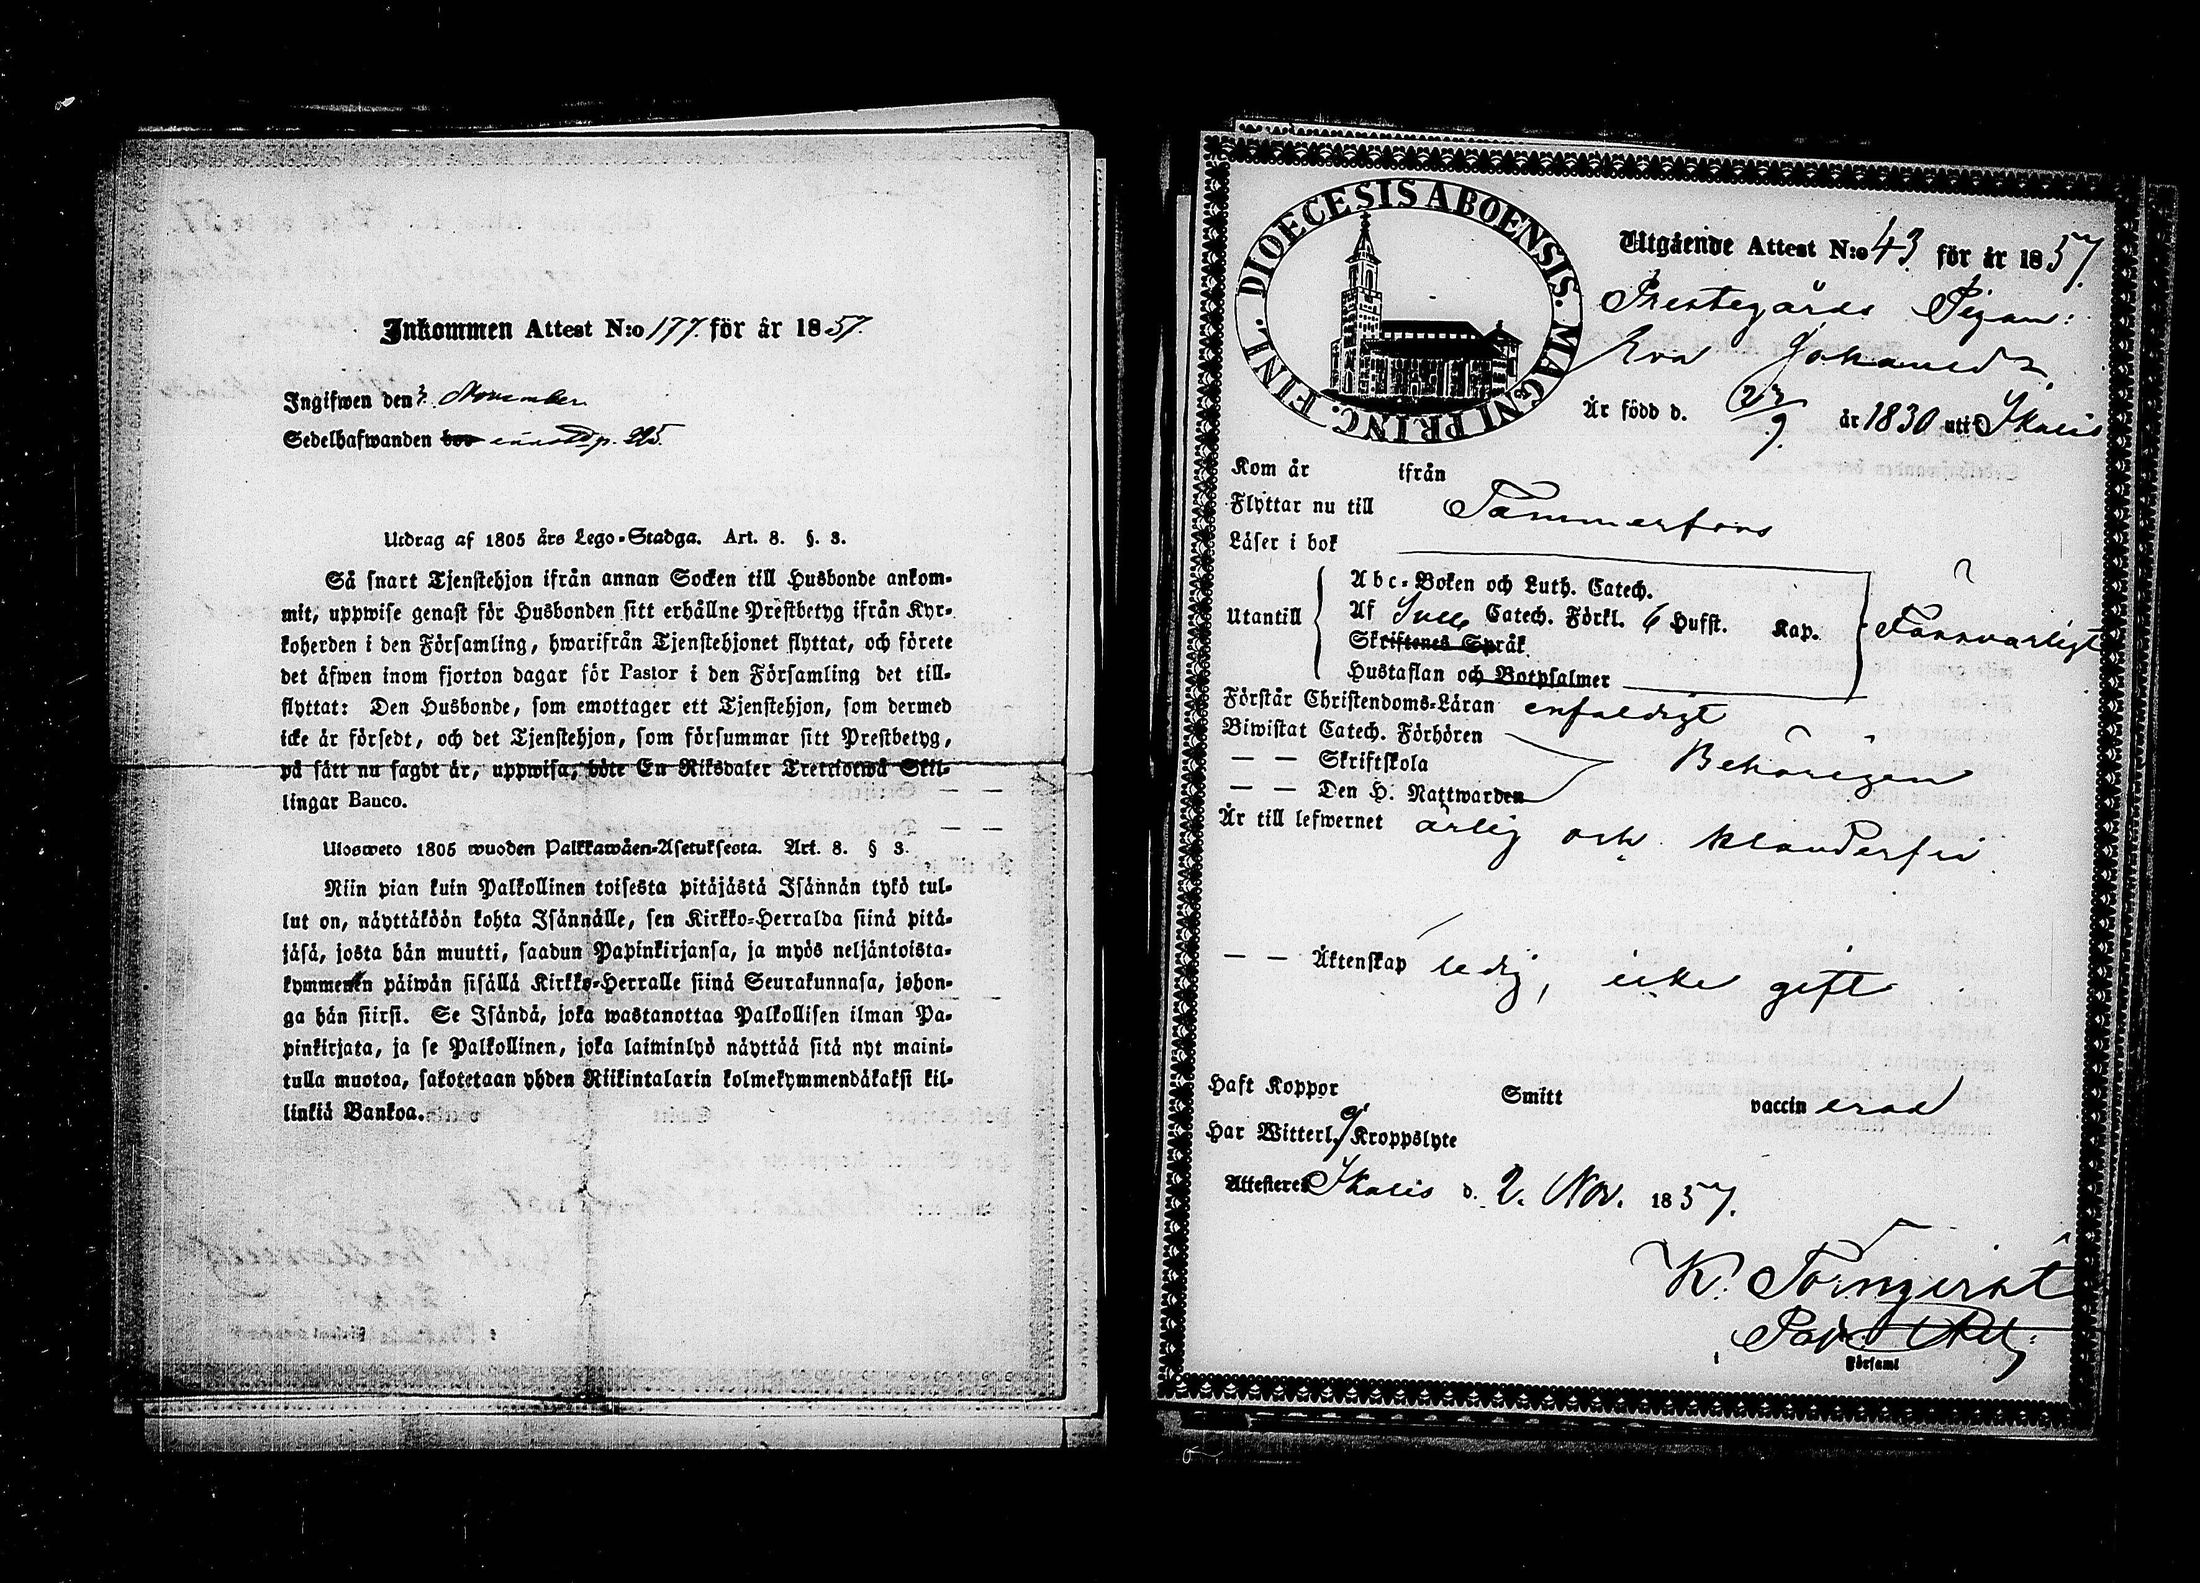 Inkommen Attest N:o 177. för år 1857.
Ingifwen den 3. November
Sedelhafwanden bor p. 295.
Utdrag af 1805 års Lego-Stadga. Art. 8. §. 3.
Så snart Tjenstehjon ifrån annan Socken till Husbonde ankom-
mit, uppwise genast för Husbonden sitt erhållne Prestbetyg ifrån Kyr-
koherden i den Församling, hwarifrån Tjenstehjonet flyttat, och förete
det äfwen inom fjorton dagar för Pastor i den Församling det till-
flyttat: Den Husbonde, som emottager ett Tjenstehjon, som dermed
icke är försedt, och det Tjenstehjon, som försummar sitt Prestbetyg,
på sätt nu sagdt är, uppwisa, böte En Riksdaler Trettiotwå Skil-
lingar Banco.
Ulosweto 1805 wuoden Palkkawäen-Asetuksesta. Art. 8. § 3.
Niin pian kuin Palkollinen toisesta pitäjästä Isännän tykö tul-
lut on, näyttäköön kohta Isännälle, sen Kirkko-Herralda siinä pitä-
jäsä, josta hän muutti, saadun Papinkirjansa, ja myös neljäntoista-
kymmenen päiwän sisällä Kirkko-Herralle siinä Seurakunnasa, johon-
ga hän siirsi. Se Isändä, joka wastanottaa Palkollisen ilman Pa-
pinkirjata, ja se Palkollinen, joka laiminlyö näyttää sitä nyt maini-
tulla muotoa, sakotetaan yhden Riikintalarin kolmekymmendäkaksi kil-
linkiä Bankoa.
DIOECESIS ABOENSIS. MAGNI PRINC. FINL.
Utgående Attest N:o 43. för år 1857.
Prestegårds Pigan:
Eva Johansd:r
Är född d. 23/9. år 1830 uti Ikalis
Kom år ifrån
Flyttar nu till Tammerfors
Läser i bok
Utantill
Abc-Boken och Luth. Catech.
Af Catech. Förkl. 6 Hufst. Kap. Försvarligt
Skriftenes Språk
Hustaflan och Botpsalmer
Förstår Christendoms-Läran enfaldigt
Biwistat Catech. Förhören
— — Skriftskola Behörigen
— — Den H. Nattwarden
Är till lefwernet ärlig och klanderfri
— — Äktenskap ledig, icke gift
Haft Koppor Smitt vaccinerad
Har Witterl. ej Kroppslyte
Attesteres Ikalis d. 2. Nov. 1857.
K. Törnqvist
Församl